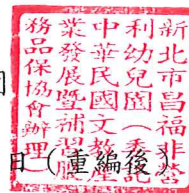 新北市昌福非營
利幼兒園（委託
中華民國文教產
業發展暨補習服
務品保協會辦理）
日（重編後）